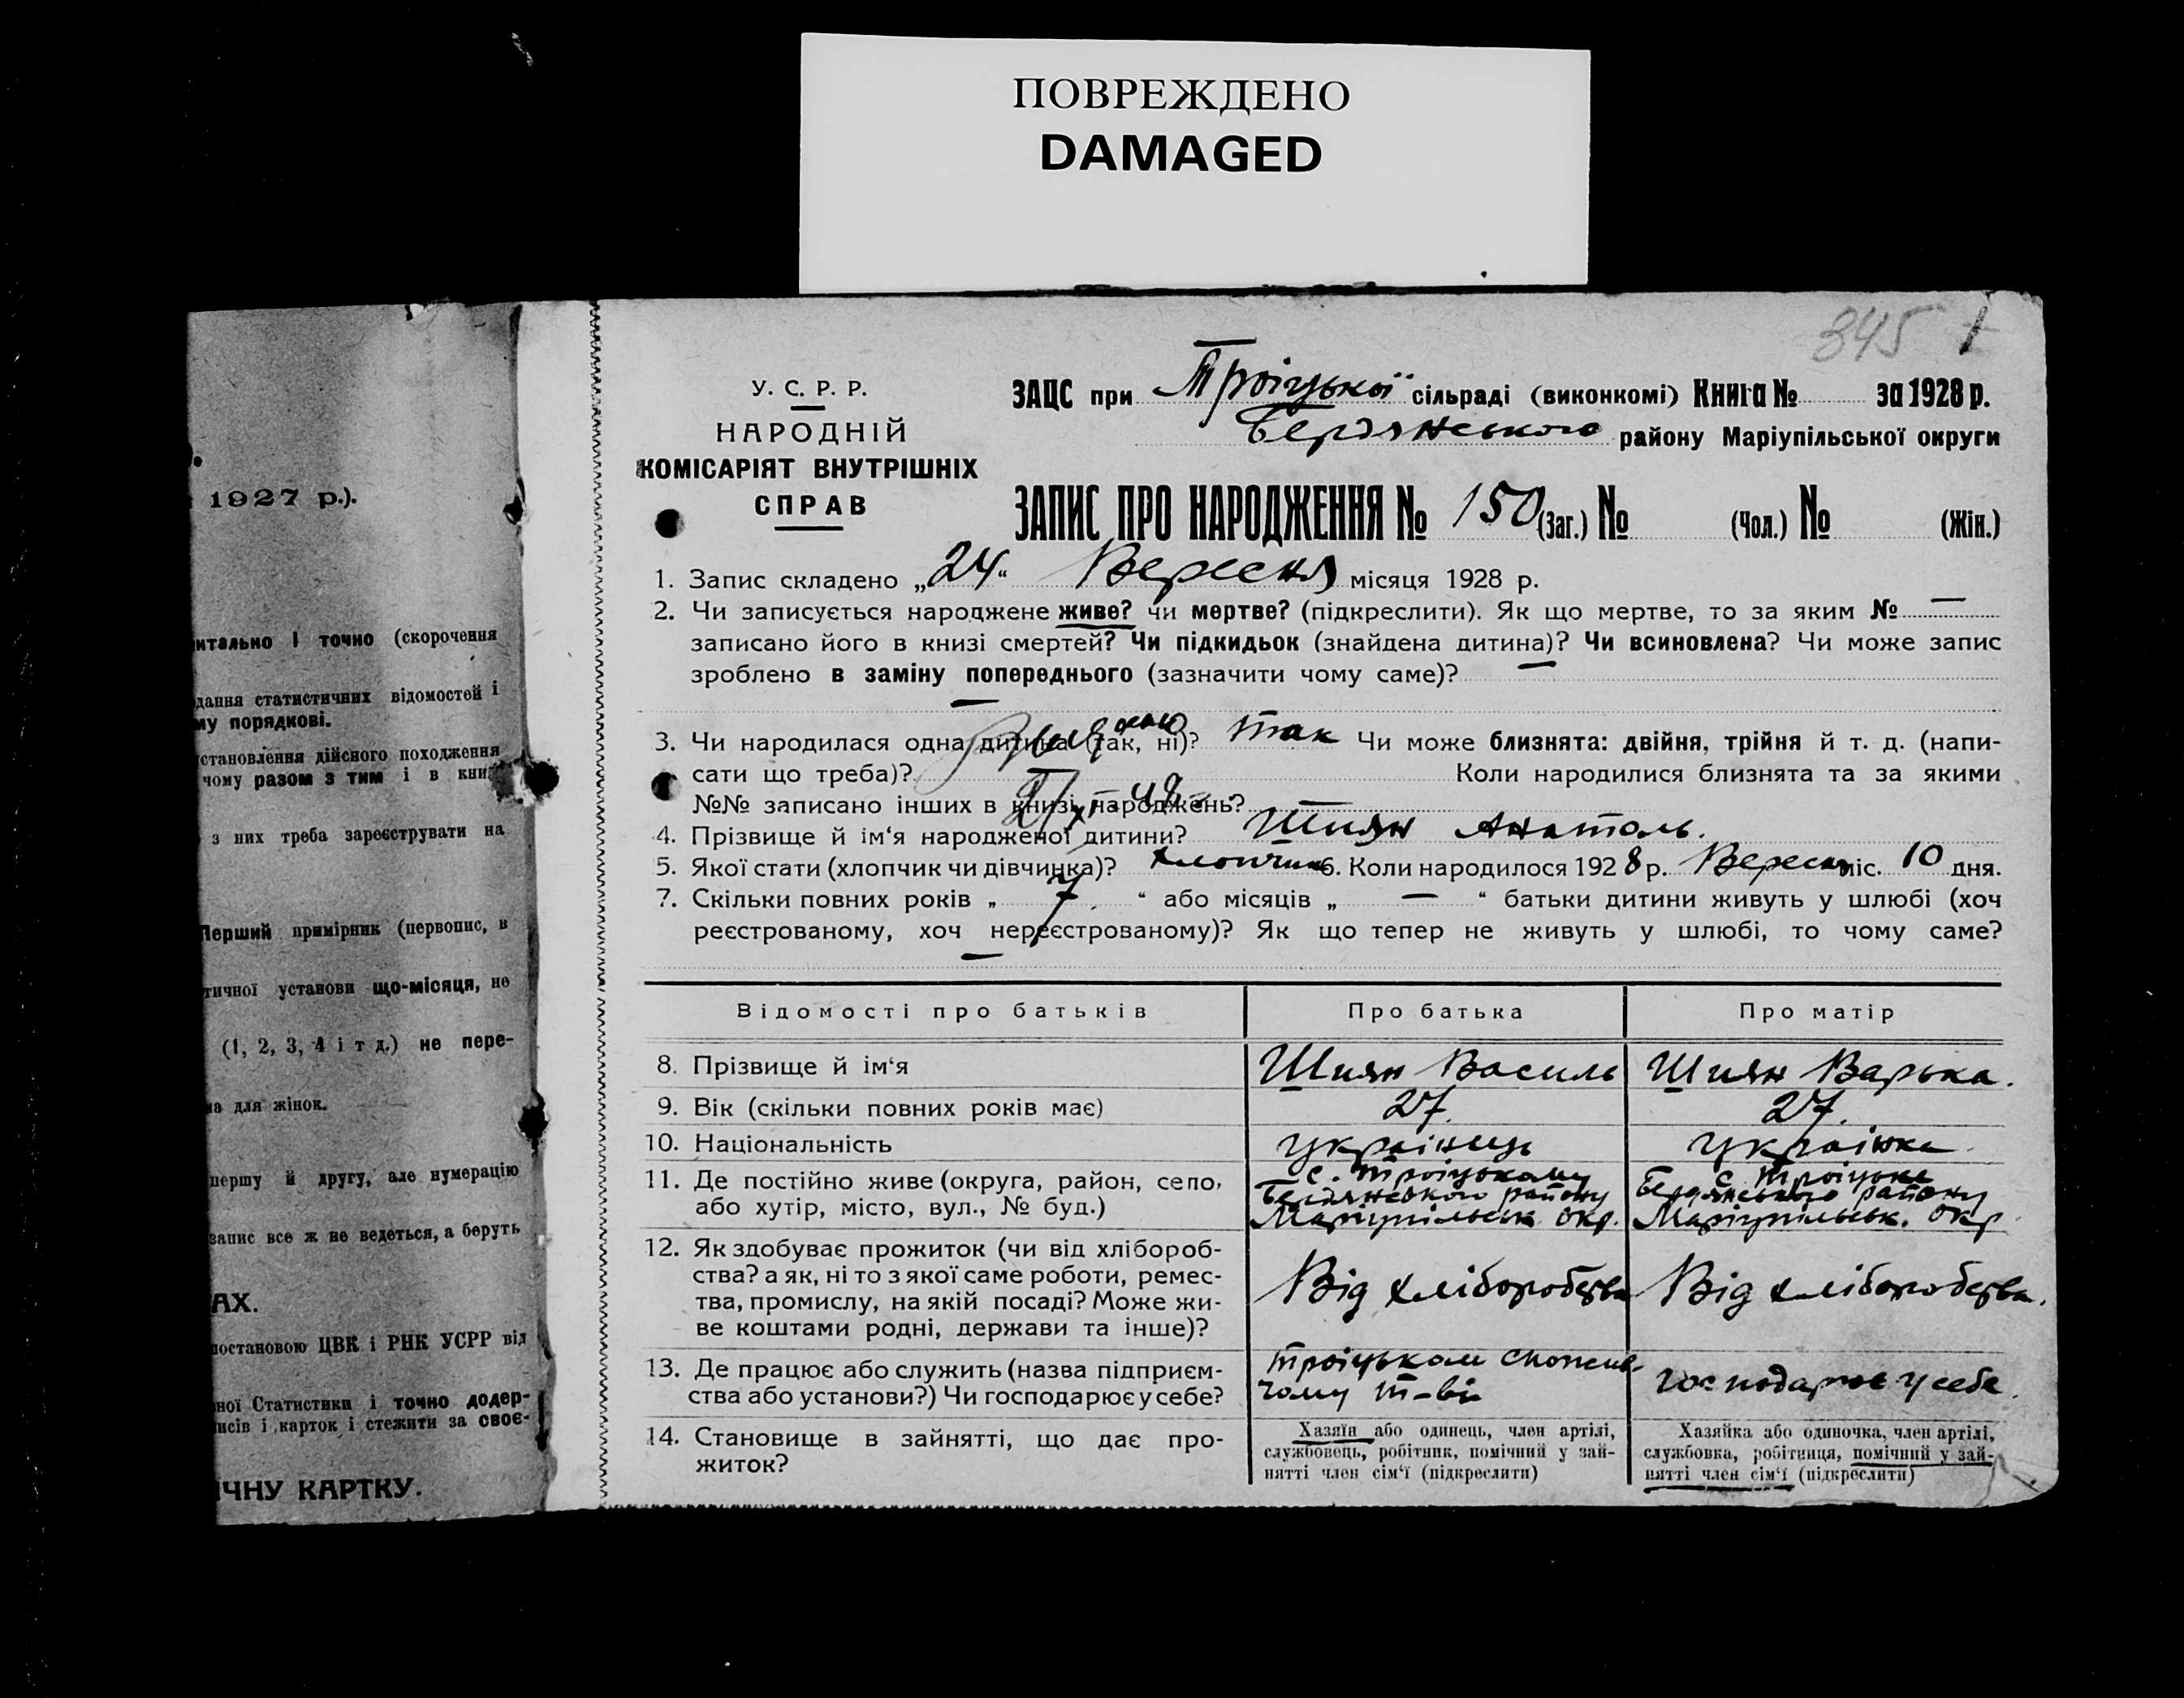 ПОВРЕЖДЕНО
DAMAGED
345
1
У. С. Р. Р.
НАРОДНІЙ
КОМІСАРІЯТ ВНУТРІШНІХ
СПРАВ
ЗАЦС при Троіцької сільраді (виконкомі) Книга № за 1928 р.
Бердянського району Маріупільської округи
ЗАПИС ПРО НАРОДЖЕННЯ № 150 (Заг.) № (Чол.) № (Жін.)
1. Запис складено „24“ Вересня місяця 1928 р.
2. Чи записується народжене живе? чи мертве? (підкреслити). Як що мертве, то за яким № —
записано його в книзі смертей? Чи підкидьок (знайдена дитина)? Чи всиновлена? Чи може запис
зроблено в заміну попереднього (зазначити чому саме)? —
—
3. Чи народилася одна дитина (так, ні)? так Чи може близнята: двійня, трійня й т. д. (напи-
сати що треба)? Коли народилися близнята та за якими
№№ записано інших в книзі народжень?
4. Прізвище й ім‘я народженої дитини? Шиян Анатоль.
5. Якої стати (хлопчик чи дівчинка)? хлопчик 6. Коли народилося 1928 р. Вересня міс. 10 дня.
7. Скільки повних років „ 7 “ або місяців „ — “ батьки дитини живуть у шлюбі (хоч
реєстрованому, хоч нереєстрованому)? Як що тепер не живуть у шлюбі, то чому саме?
—
Відомості про батьків Про батька Про матір
8. Прізвище й ім‘я Шиян Василь Шиян Варька.
9. Вік (скільки повних років має) 27. 27.
10. Національність українець українка
11. Де постійно живе (округа, район, село, с. Троіцькому с. Троіцьке
або хутір, місто, вул., № буд.) Бердянського району Бердянського району
Маріупільськ окр. Маріупільськ. окр
12. Як здобуває прожиток (чи від хлібороб-
ства? а як, ні то з якої саме роботи, ремес-
тва, промислу, на якій посаді? Може жи-
ве коштами родні, держави та інше)?
Від хліборобства Від хліборобства.
13. Де працює або служить (назва підприєм-
ства або установи?) Чи господарює у себе?
Троіцьком спожив-
чому т-ві
господарює у себе.
14. Становище в зайнятті, що дає про-
житок?
Хазяїн або одинець, член артілі,
службовець, робітник, помічний у зай-
нятті член сім‘ї (підкреслити)
Хазяйка або одиночка, член артілі,
службовка, робітниця, помічний у зай-
нятті член сім‘ї (підкреслити)
1927 р.).
итально і точно (скорочення
дання статистичних відомостей і
му порядкові.
становлення дійсного походження
чому разом з тим і в кни
з них треба зареєструвати на
Перший примірник (первопис, в
тичної установи що-місяця, не
(1, 2, 3, 4 і т д.) не пере-
на для жінок.
першу й другу, але нумерацію
запис все ж не ведеться, а беруть
АХ.
постановою ЦВК і РНК УСРР від
ної Статистики і точно додер-
исів і карток і стежити за своє-
ИЧНУ КАРТКУ.